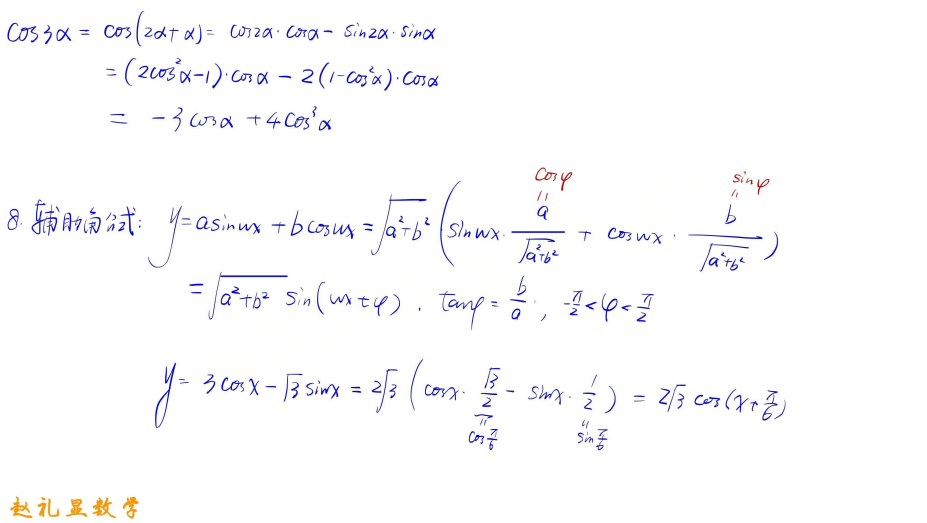 cos3α = cos(2α+α) = cos2α·cosα - sin2α·sinα
= (2cos²α-1)·cosα - 2(1-cos²α)·cosα
= -3cosα + 4cos³α
cosφ sinφ
8. 辅助角公式: y=asinωx + bcosωx = √(a²+b²) (sinωx· a/√(a²+b²) + cosωx· b/√(a²+b²))
= √(a²+b²) sin(ωx+φ), tanφ = b/a, -π/2<φ<π/2
y= 3cosx - √3 sinx = 2√3 (cosx· √3/2 - sinx· 1/2) = 2√3 cos(x+π/6)
cosπ/6 sinπ/6
赵礼显数学